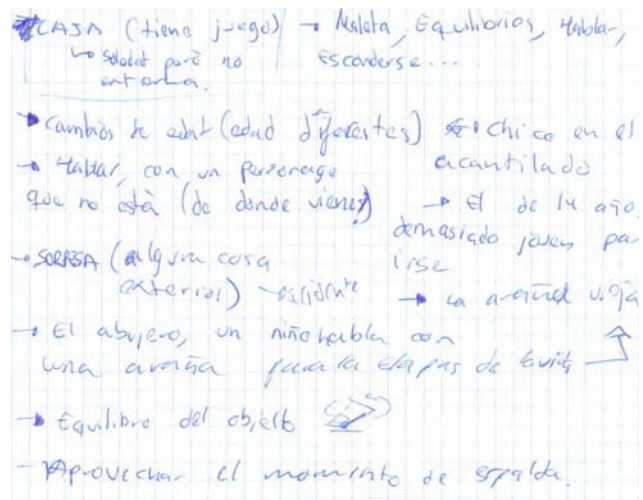 CAJA (tiene juego) → Maleta, Equilibrios, Hablar,
↳ soledat però no Esconderse...
entorna.
→ Cambios de edat (edad diferentes) Chico en el
→ Hablar, con un personage acantilado
que no està (de donde viene?) → El de 14 año,
demasiado joven par
→ SORPRESA (alguna cosa irse
exterior) → accidente → La araña vieja
→ El abujero, un niño habla con
una araña para la etapas de la vida
→ Equilibro del objeto
→ Aprovechar el momento de espalda.